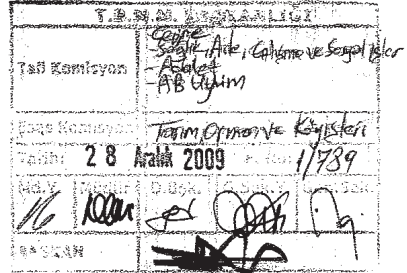 T.B.M.M. BAŞKANLIĞI
Tali Komisyon
Çevre
-Sağlık, Aile, Çalışma ve Sosyal işler
-Adalet
-AB Uyum
Esas Komisyon
Tarım, Orman ve Köyişleri
Tarihi: 28 Aralık 2009
1/789
Md.Y. Müdür
BAŞKAN